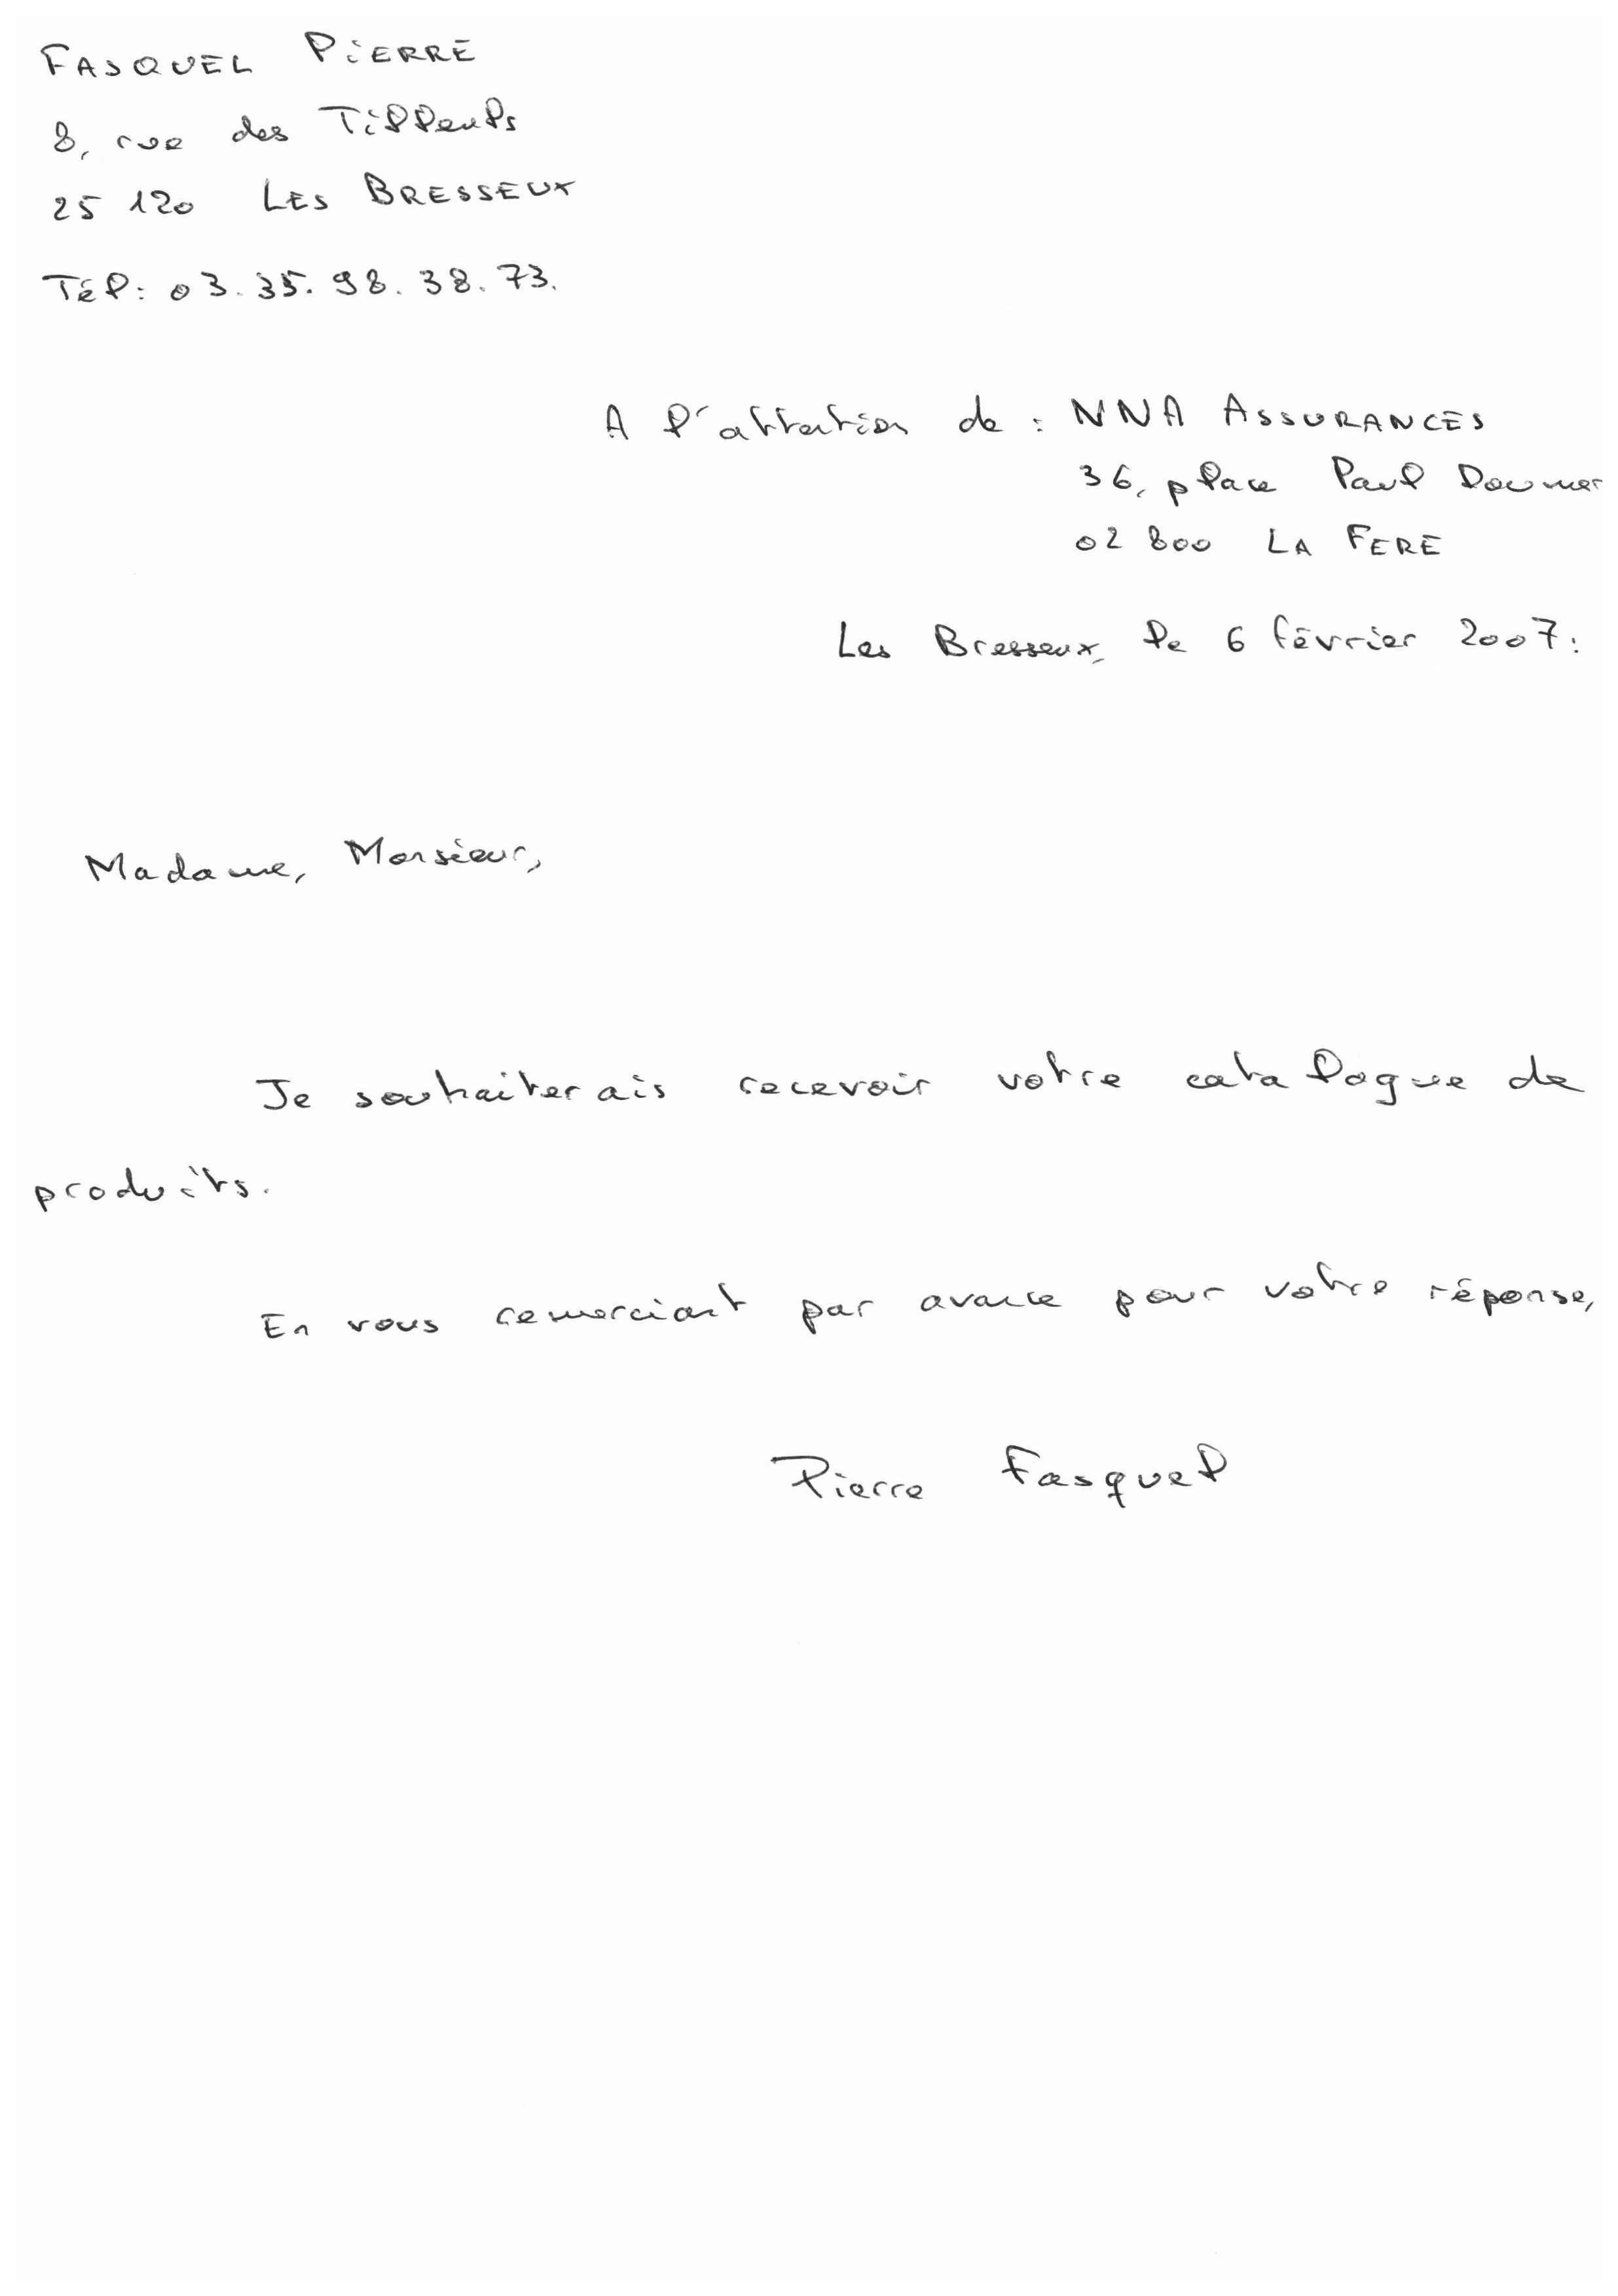 FASQUEL PIERRE
8, rue des Tilleuls
25 120 LES BRESSEUX
Tél: 03.35.98.38.73.
A l'attention de : NNA ASSURANCES
36, place Paul Doumer
02 800 LA FERE
Les Bresseux, le 6 février 2007:
Madame, Monsieur,
Je souhaiterais recevoir votre catalogue de
produits.
En vous remerciant par avance pour votre réponse,
Pierre Fasquel